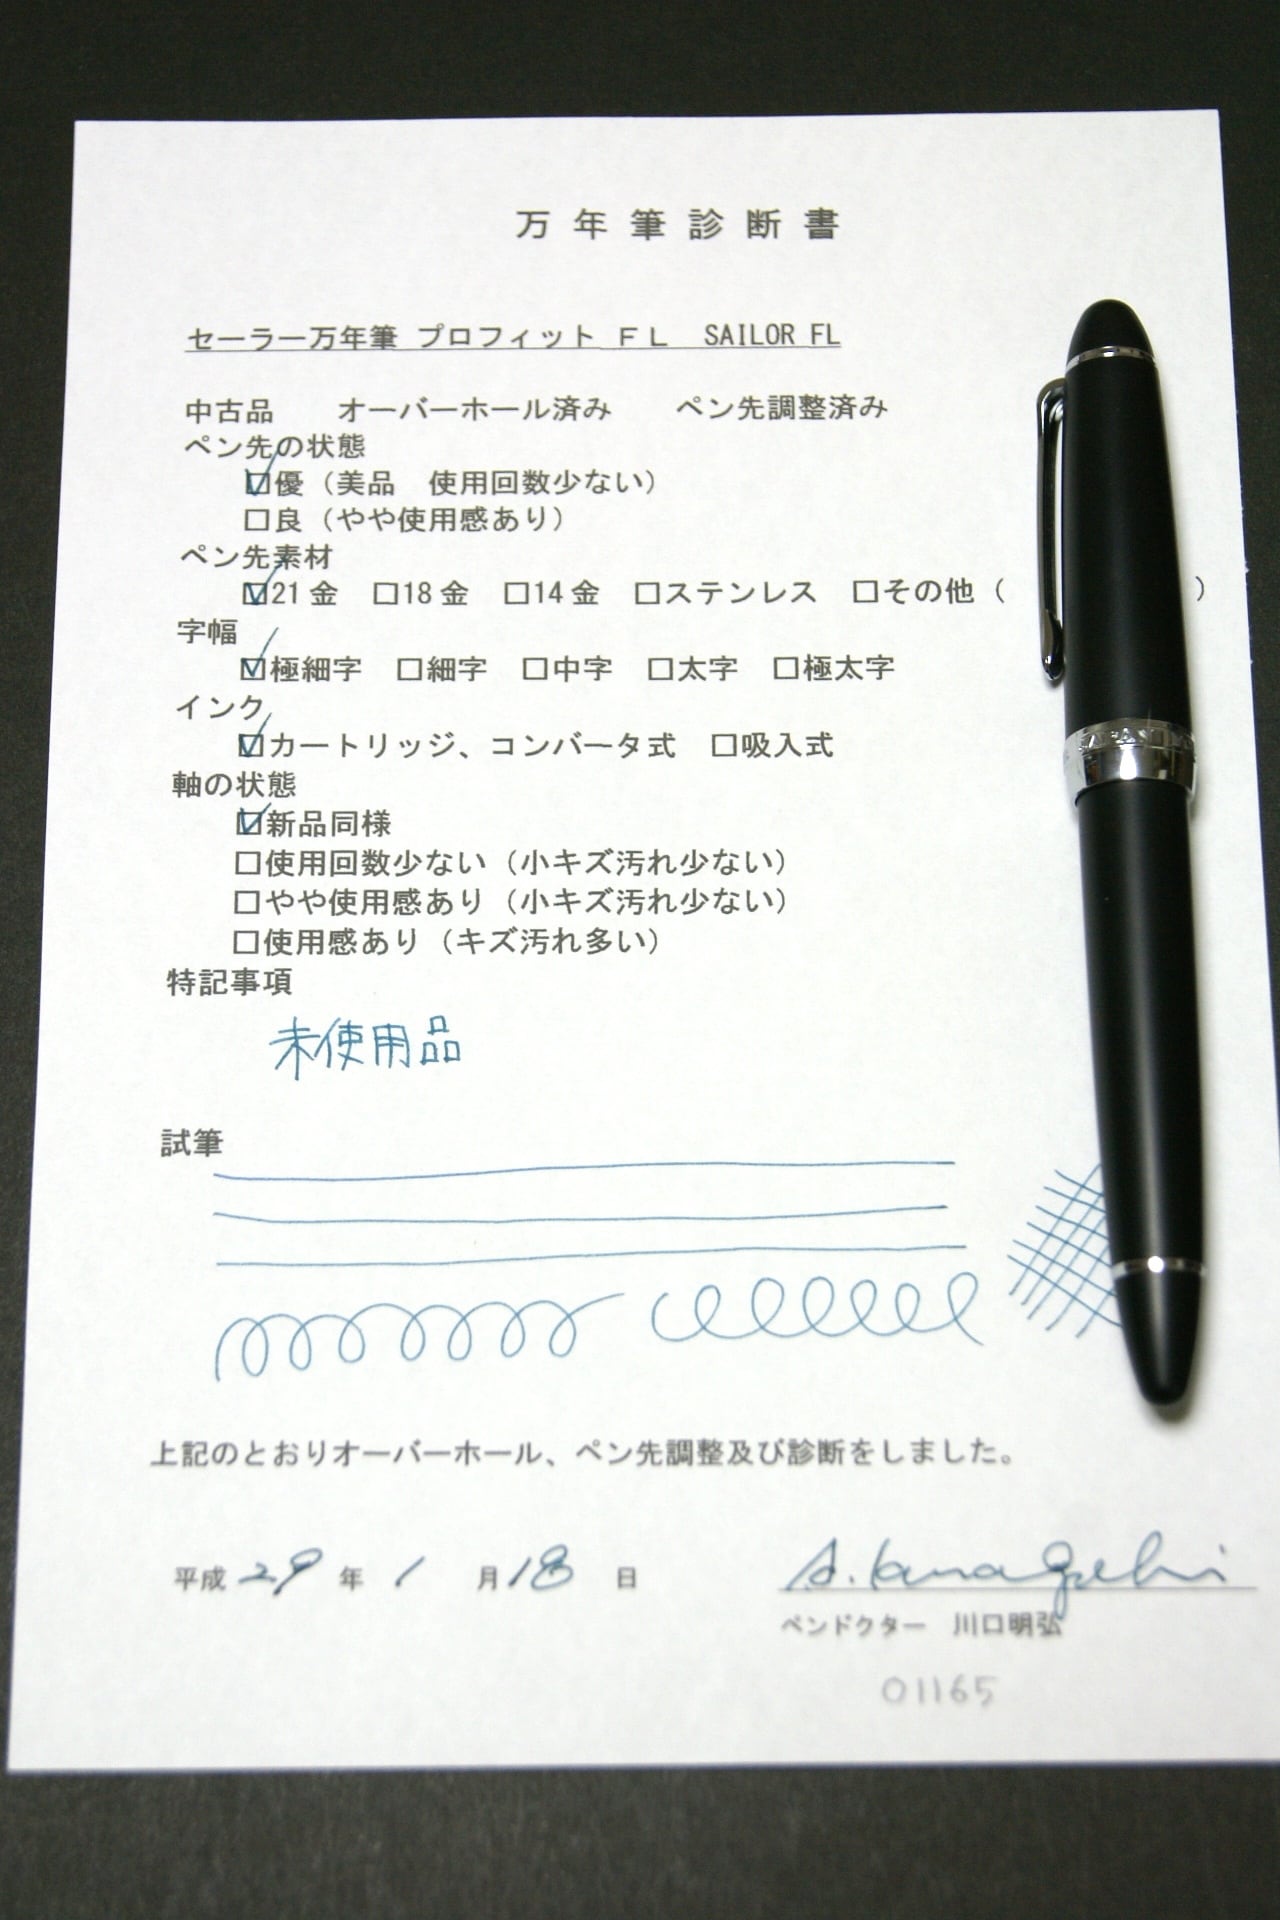 万年筆診断書
セーラー万年筆 プロフィット ＦＬ SAILOR FL
中古品 オーバーホール済み ペン先調整済み
ペン先の状態
☑優（美品 使用回数少ない）
□良（やや使用感あり）
ペン先素材
☑21金 □18金 □14金 □ステンレス □その他（ ）
字幅
☑極細字 □細字 □中字 □太字 □極太字
インク
☑カートリッジ、コンバータ式 □吸入式
軸の状態
☑新品同様
□使用回数少ない（小キズ汚れ少ない）
□やや使用感あり（小キズ汚れ少ない）
□使用感あり（キズ汚れ多い）
特記事項
未使用品
試筆
上記のとおりオーバーホール、ペン先調整及び診断をしました。
平成 29 年 1 月 18 日
ペンドクター 川口明弘
01165